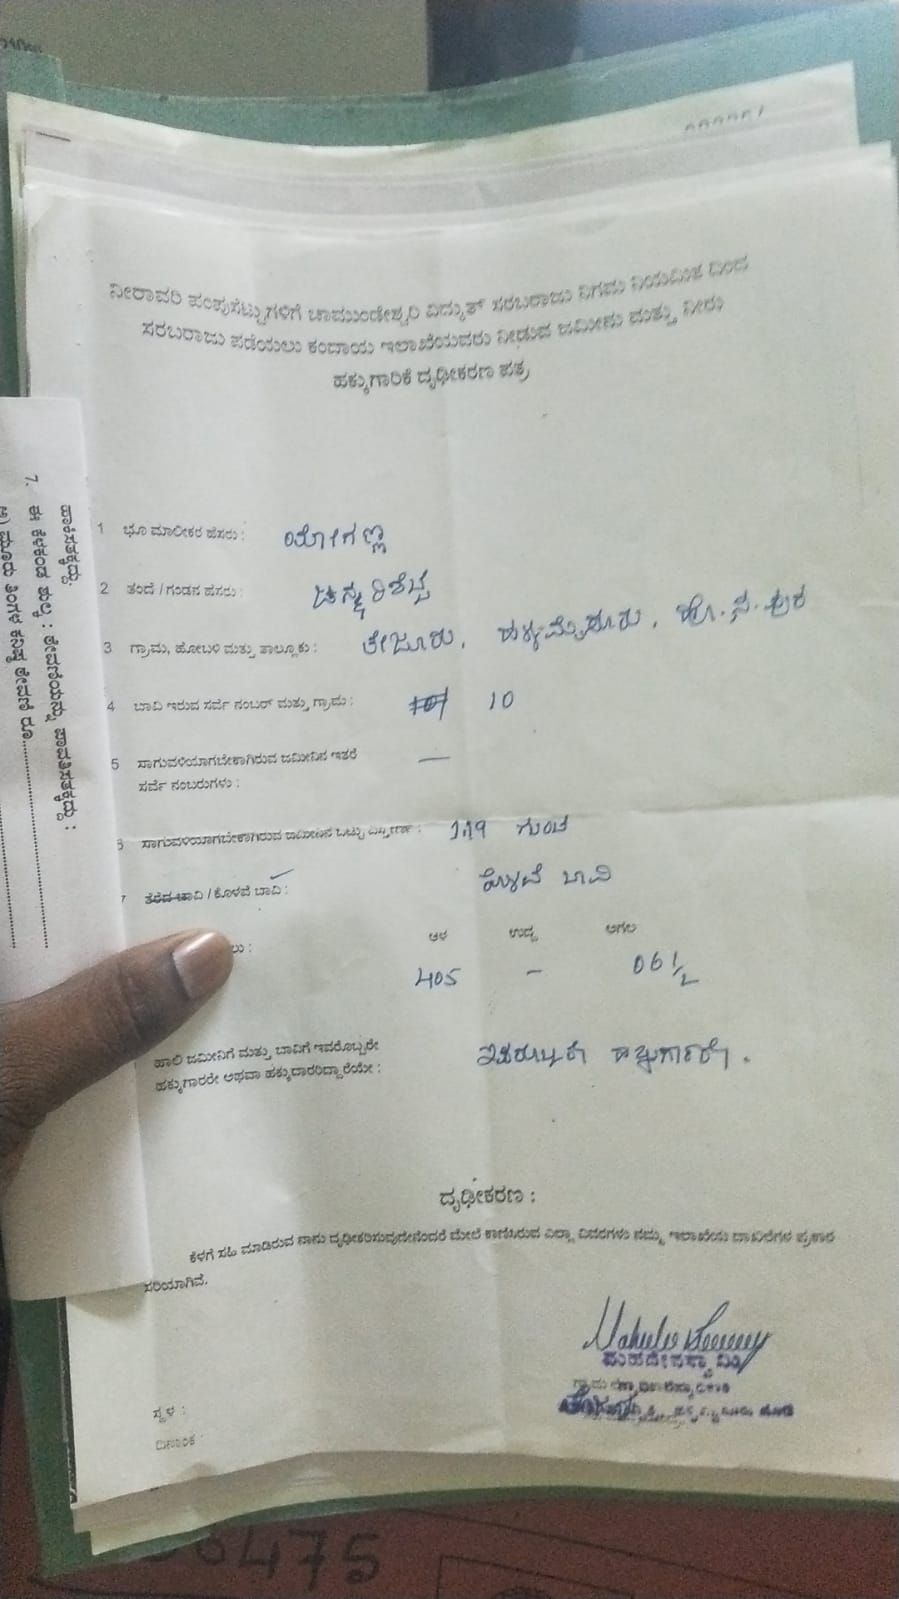 ನೀರಾವರಿ ಪಂಪುಸೆಟ್ಟುಗಳಿಗೆ ಚಾಮುಂಡೇಶ್ವರಿ ವಿದ್ಯುತ್ ಸರಬರಾಜು ನಿಗಮ ನಿಯಮಿತ ದಿಂದ
ಸರಬರಾಜು ಪಡೆಯಲು ಕಂದಾಯ ಇಲಾಖೆಯವರು ನೀಡುವ ಜಮೀನು ಮತ್ತು ನೀರು
ಹಕ್ಕುಗಾರಿಕೆ ದೃಢೀಕರಣ ಪತ್ರ
1 ಭೂ ಮಾಲೀಕರ ಹೆಸರು : ಯೋಗಣ್ಣ
2 ತಂದೆ / ಗಂಡನ ಹೆಸರು :
3 ಗ್ರಾಮ, ಹೋಬಳಿ ಮತ್ತು ತಾಲ್ಲೂಕು : ತೇಜೂರು,
4 ಬಾವಿ ಇರುವ ಸರ್ವೆ ನಂಬರ್ ಮತ್ತು ಗ್ರಾಮ : 10
5 ಸಾಗುವಳಿಯಾಗಬೇಕಾಗಿರುವ ಜಮೀನಿನ ಇತರೆ —
ಸರ್ವೆ ನಂಬರುಗಳು :
ಸಾಗುವಳಿಯಾಗಬೇಕಾಗಿರುವ ಜಮೀನಿನ ಒಟ್ಟು ವಿಸ್ತೀರ್ಣ : 1.19 ಗುಂಟೆ
7 ತೆರೆದ ಬಾವಿ / ಕೊಳವೆ ಬಾವಿ : ಕೊಳವೆ ಬಾವಿ
ಆಳ ಉದ್ದ ಅಗಲ
405 – 06 1/2
ಹಾಲಿ ಜಮೀನಿಗೆ ಮತ್ತು ಬಾವಿಗೆ ಇವರೊಬ್ಬರೇ
ಹಕ್ಕುಗಾರರೇ ಅಥವಾ ಹಕ್ಕುದಾರರಿದ್ದಾರೆಯೇ : ಇವರೊಬ್ಬರೇ ಹಕ್ಕುದಾರರು.
ದೃಢೀಕರಣ :
ಕೆಳಗೆ ಸಹಿ ಮಾಡಿರುವ ನಾನು ದೃಢೀಕರಿಸುವುದೇನೆಂದರೆ ಮೇಲೆ ಕಾಣಿಸಿರುವ ಎಲ್ಲಾ ವಿವರಗಳು ನಮ್ಮ ಇಲಾಖೆಯ ದಾಖಲೆಗಳ ಪ್ರಕಾರ
ಸರಿಯಾಗಿವೆ.
ಮಹದೇವಸ್ವಾಮಿ
ಸ್ಥಳ :
ದಿನಾಂಕ :
ಪಾವತಿಸತಕ್ಕದ್ದು.
7. ಈ ಕೆಳಕಂಡ ಶುಲ್ಕ : ಠೇವಣಿಯನ್ನು ಪಾವತಿಸತಕ್ಕದ್ದು :
ಅ) ಮೂರು ತಿಂಗಳ ಕನಿಷ್ಠ ಠೇವಣಿ ರೂ.
6475